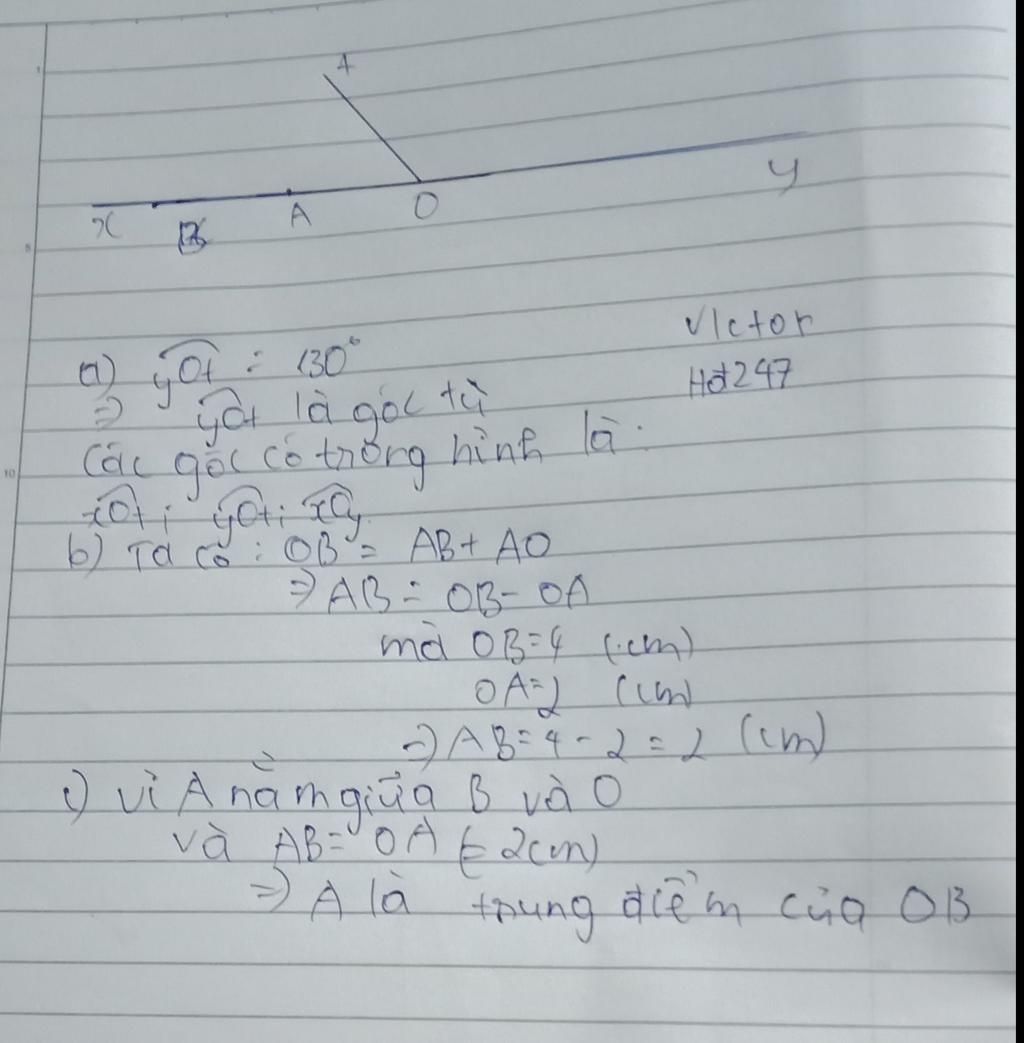 t
x B A O y
Victor
Hot247
a) yOt = 130°
=> yOt là góc tù
Các góc có trong hình là:
xOt; yOt; xOy
b) Ta có: OB = AB + AO
=> AB = OB - OA
mà OB = 4 (cm)
OA = 2 (cm)
=> AB = 4 - 2 = 2 (cm)
c) Vì A nằm giữa B và O
và AB = OA (= 2cm)
=> A là trung điểm của OB